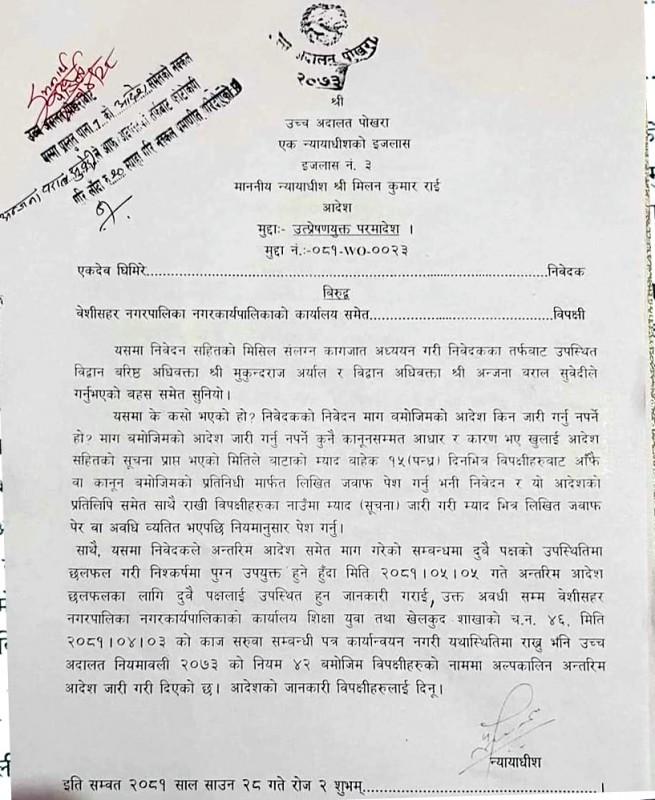 अदालत पोखरा
२०७३
श्री
उच्च अदालत पोखरा
एक न्यायाधीशको इजलास
इजलास नं. ३
माननीय न्यायाधीश श्री मिलन कुमार राई
आदेश
मुद्दाः- उत्प्रेषणयुक्त परमादेश ।
मुद्दा नं.:-०८१-WO-००२३
एकदेव घिमिरे........................................निवेदक
विरुद्व
वेशीसहर नगरपालिका नगरकार्यपालिकाको कार्यालय समेत........................................विपक्षी
यसमा निवेदन सहितको मिसिल संलग्न कागजात अध्ययन गरी निवेदकका तर्फबाट उपस्थित
विद्वान बरिष्ठ अधिवक्ता श्री मुकुन्दराज अर्याल र विद्वान अधिवक्ता श्री अन्जना बराल सुवेदीले
गर्नुभएको बहस समेत सुनियो।
यसमा के कसो भएको हो? निवेदकको निवेदन माग बमोजिमको आदेश किन जारी गर्नु नपर्ने
हो? माग बमोजिमको आदेश जारी गर्नु नपर्ने कुनै कानूनसम्मत आधार र कारण भए खुलाई आदेश
सहितको सूचना प्राप्त भएको मितिले बाटाको म्याद बाहेक १५(पन्ध्र) दिनभित्र विपक्षीहरुबाट आँफै
वा कानून बमोजिमको प्रतिनिधी मार्फत लिखित जवाफ पेश गर्नु भनी निवेदन र यो आदेशको
प्रतिलिपि समेत साथै राखी विपक्षीहरुका नाउँमा म्याद (सूचना) जारी गरी म्याद भित्र लिखित जवाफ
पेर वा अवधि व्यतित भएपछि नियमानुसार पेश गर्नु।
साथै, यसमा निवेदकले अन्तरिम आदेश समेत माग गरेको सम्बन्धमा दुवै पक्षको उपस्थितिमा
छलफल गरी निश्कर्षमा पुग्न उपयुक्त हुने हुँदा मिति २०८१।०५।०५ गते अन्तरिम आदेश
छलफलका लागि दुवै पक्षलाई उपस्थित हुन जानकारी गराई, उक्त अवधी सम्म वेशीसहर
नगरपालिका नगरकार्यपालिकाको कार्यालय शिक्षा युवा तथा खेलकुद शाखाको च.न. ४६, मिति
२०८१।०४।०३ को काज सरुवा सम्बन्धी पत्र कार्यान्वयन नगरी यथास्थितिमा राख्नु भनि उच्च
अदालत नियमावली २०७३ को नियम ४२ बमोजिम विपक्षीहरुको नाममा अल्पकालिन अन्तरिम
आदेश जारी गरी दिएको छ। आदेशको जानकारी विपक्षीहरुलाई दिनू।
न्यायाधीश
इति सम्बत २०८१ साल साउन २८ गते रोज २ शुभम्........................................।